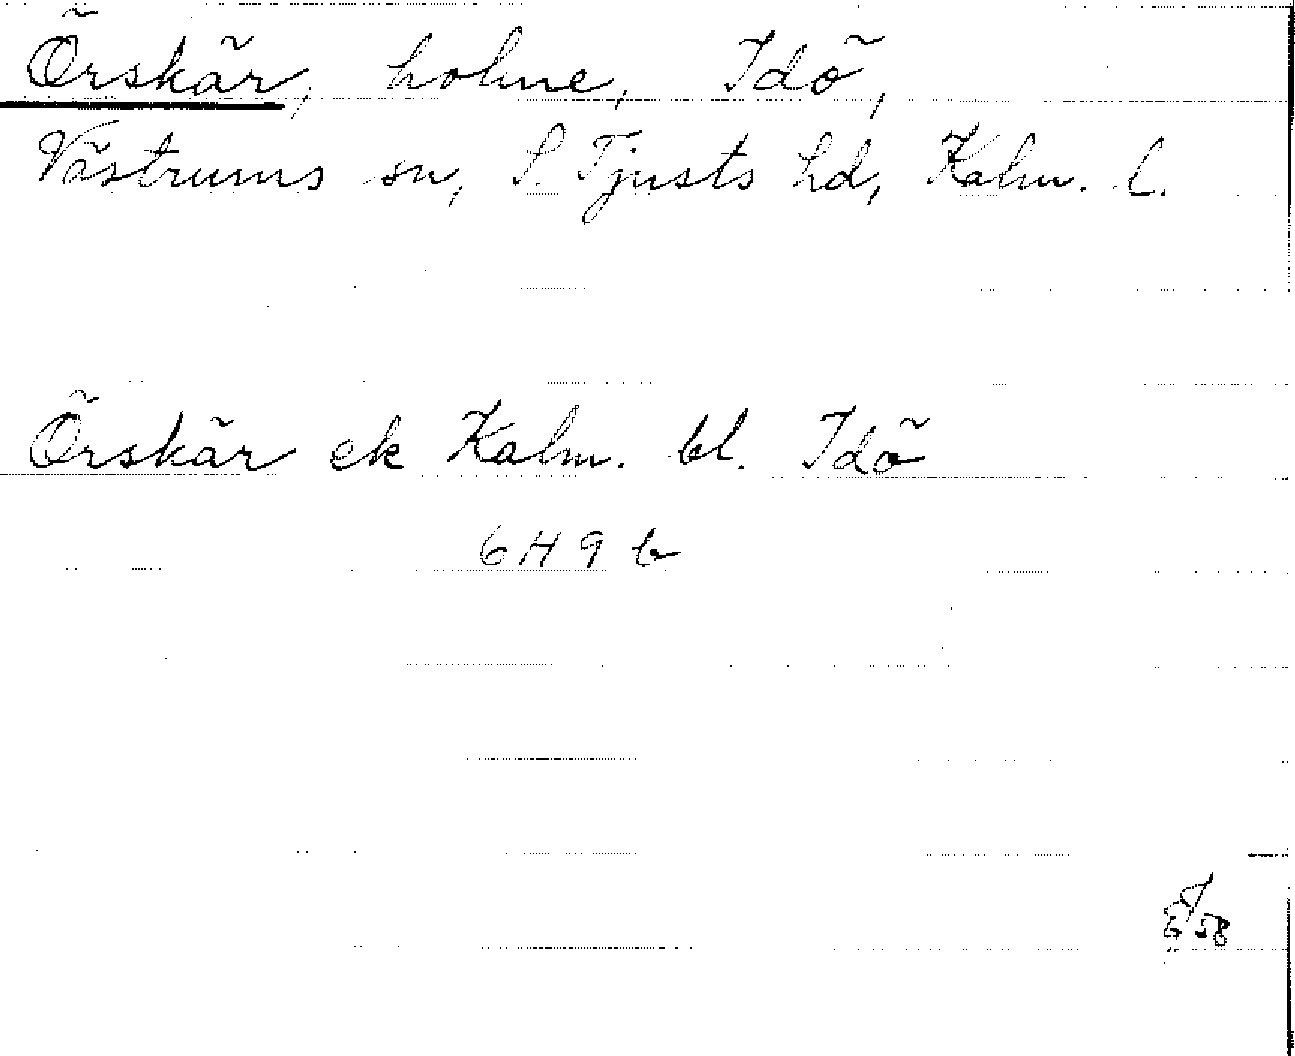 Örskär, holme, Idö,
Västrums sn, S. Tjusts hd, Kalm. l.
Örskär ek Kalm. bl. Idö
6 H 9 b
58